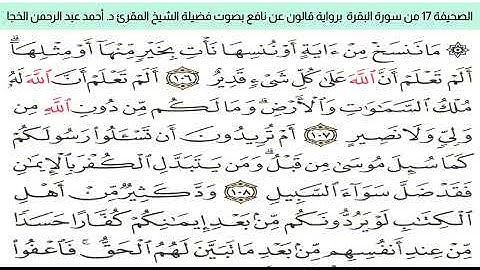 الصحيفة 17 من سورة البقرة برواية قالون عن نافع بصوت فضيلة الشيخ المقرئ د. أحمد عبد الرحمن الخجا
۞ مَا نَنسَخْ مِنْ ءَايَةٍ أَوْ نُنسِهَا نَأْتِ بِخَيْرٍ مِّنْهَا أَوْ مِثْلِهَا
أَلَمْ تَعْلَمْ أَنَّ اَللَّهَ عَلَىٰ كُلِّ شَيْءٍ قَدِيرٌ ١٠٦ أَلَمْ تَعْلَمْ أَنَّ اَللَّهَ لَهُۥ
مُلْكُ السَّمَٰوَٰتِ وَالْأَرْضِ وَمَا لَكُم مِّن دُونِ اِللَّهِ مِن
وَلِيٍّ وَلَا نَصِيرٍ ١٠٧ أَمْ تُرِيدُونَ أَن تَسْـَٔلُوا رَسُولَكُمْ
كَمَا سُئِلَ مُوسَىٰ مِن قَبْلُ وَمَنْ يَتَبَدَّلِ الْكُفْرَ بِالْإِيمَٰنِ
فَقَد ضَّلَّ سَوَآءَ السَّبِيلِ ١٠٨ وَدَّ كَثِيرٌ مِّنْ أَهْلِ
الْكِتَٰبِ لَوْ يَرُدُّونَكُم مِّنۢ بَعْدِ إِيمَٰنِكُمْ كُفَّارًا حَسَدًا
مِّنْ عِندِ أَنفُسِهِم مِّنۢ بَعْدِ مَا تَبَيَّنَ لَهُمُ الْحَقُّ فَاعْفُوا